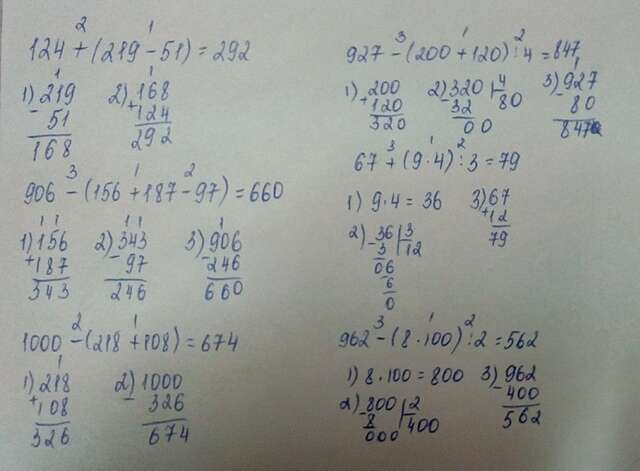 124 + (219 - 51) = 292
2 1
1) 219 - 51 = 168
2) 168 + 124 = 292
906 - (156 + 187 - 97) = 660
3 1 2
1) 156 + 187 = 343
2) 343 - 97 = 246
3) 906 - 246 = 660
1000 - (218 + 108) = 674
2 1
1) 218 + 108 = 326
2) 1000 - 326 = 674
927 - (200 + 120) : 4 = 847
3 1 2
1) 200 + 120 = 320
2) 320 | 4
- 32 80
00
3) 927 - 80 = 847
67 + (9 · 4) : 3 = 79
3 1 2
1) 9 · 4 = 36
2) 36 | 3
- 3 12
06
6
0
3) 67 + 12 = 79
962 - (8 · 100) : 2 = 562
3 1 2
1) 8 · 100 = 800
2) 800 | 2
- 8 400
000
3) 962 - 400 = 562